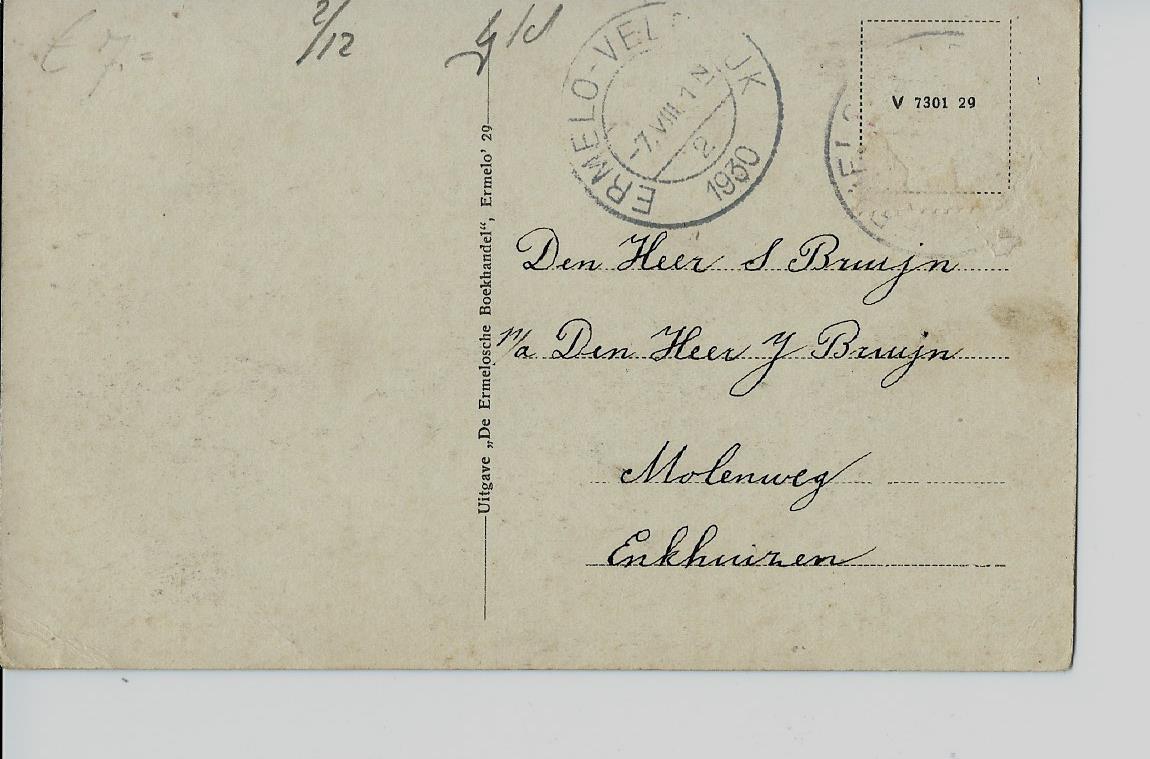 € 7.-
2/12
ERMELO-VEL JK
-7.VIII.1 N
2
1930
ELO
V 7301 29
Uitgave „De Ermelosche Boekhandel“, Ermelo' 29
Den Heer S Bruijn
p/a Den Heer J Bruijn
Molenweg
Enkhuizen